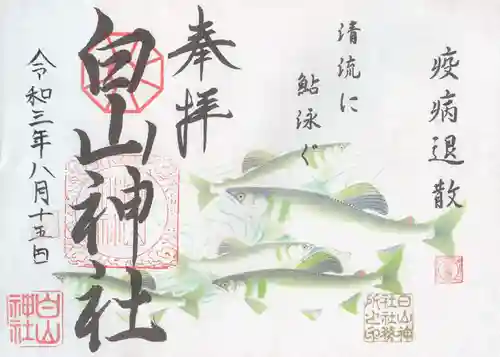 疫病退散
清流に
鮎泳ぐ
奉拝
白山神社
令和三年八月十五日
白山
神社
白山神
社社務
所之印